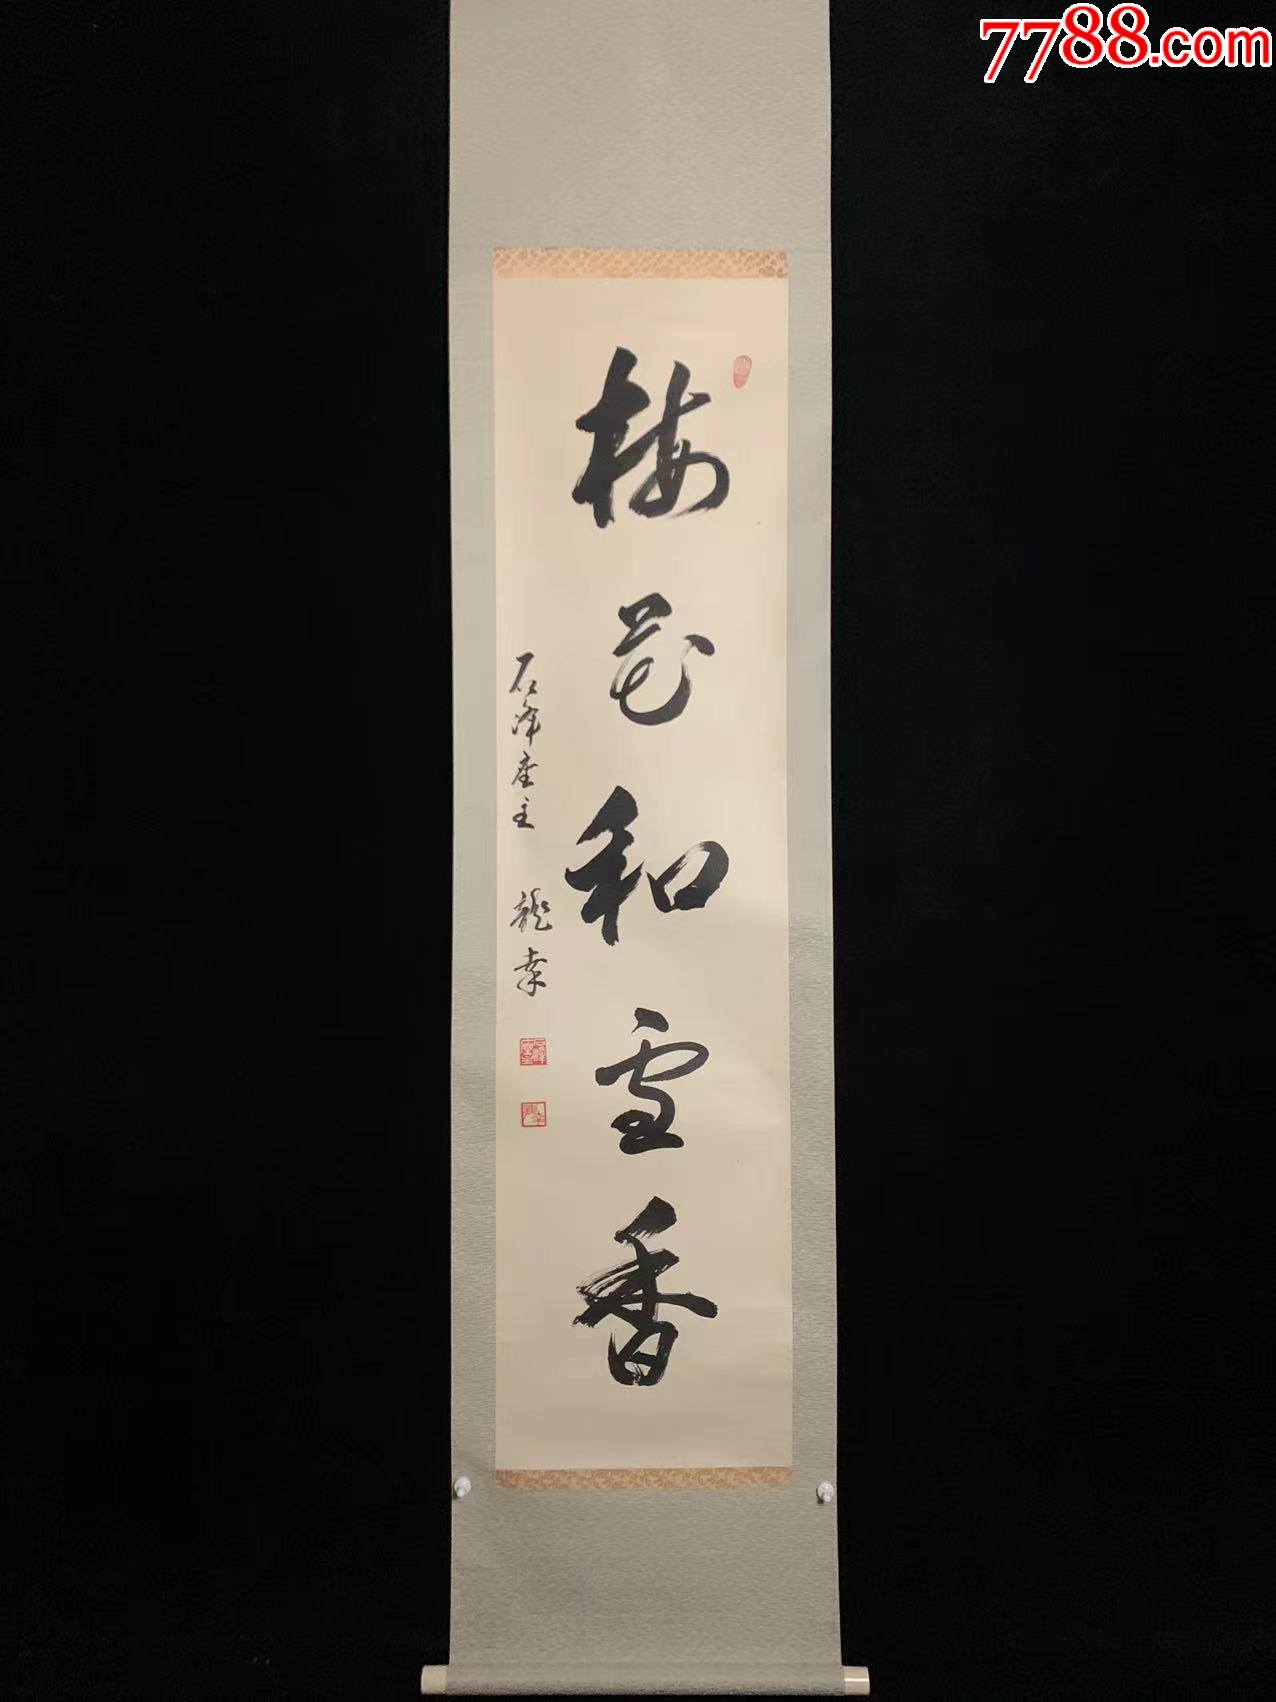 7788.com
梅花和雪香
石峰座主 龍幸